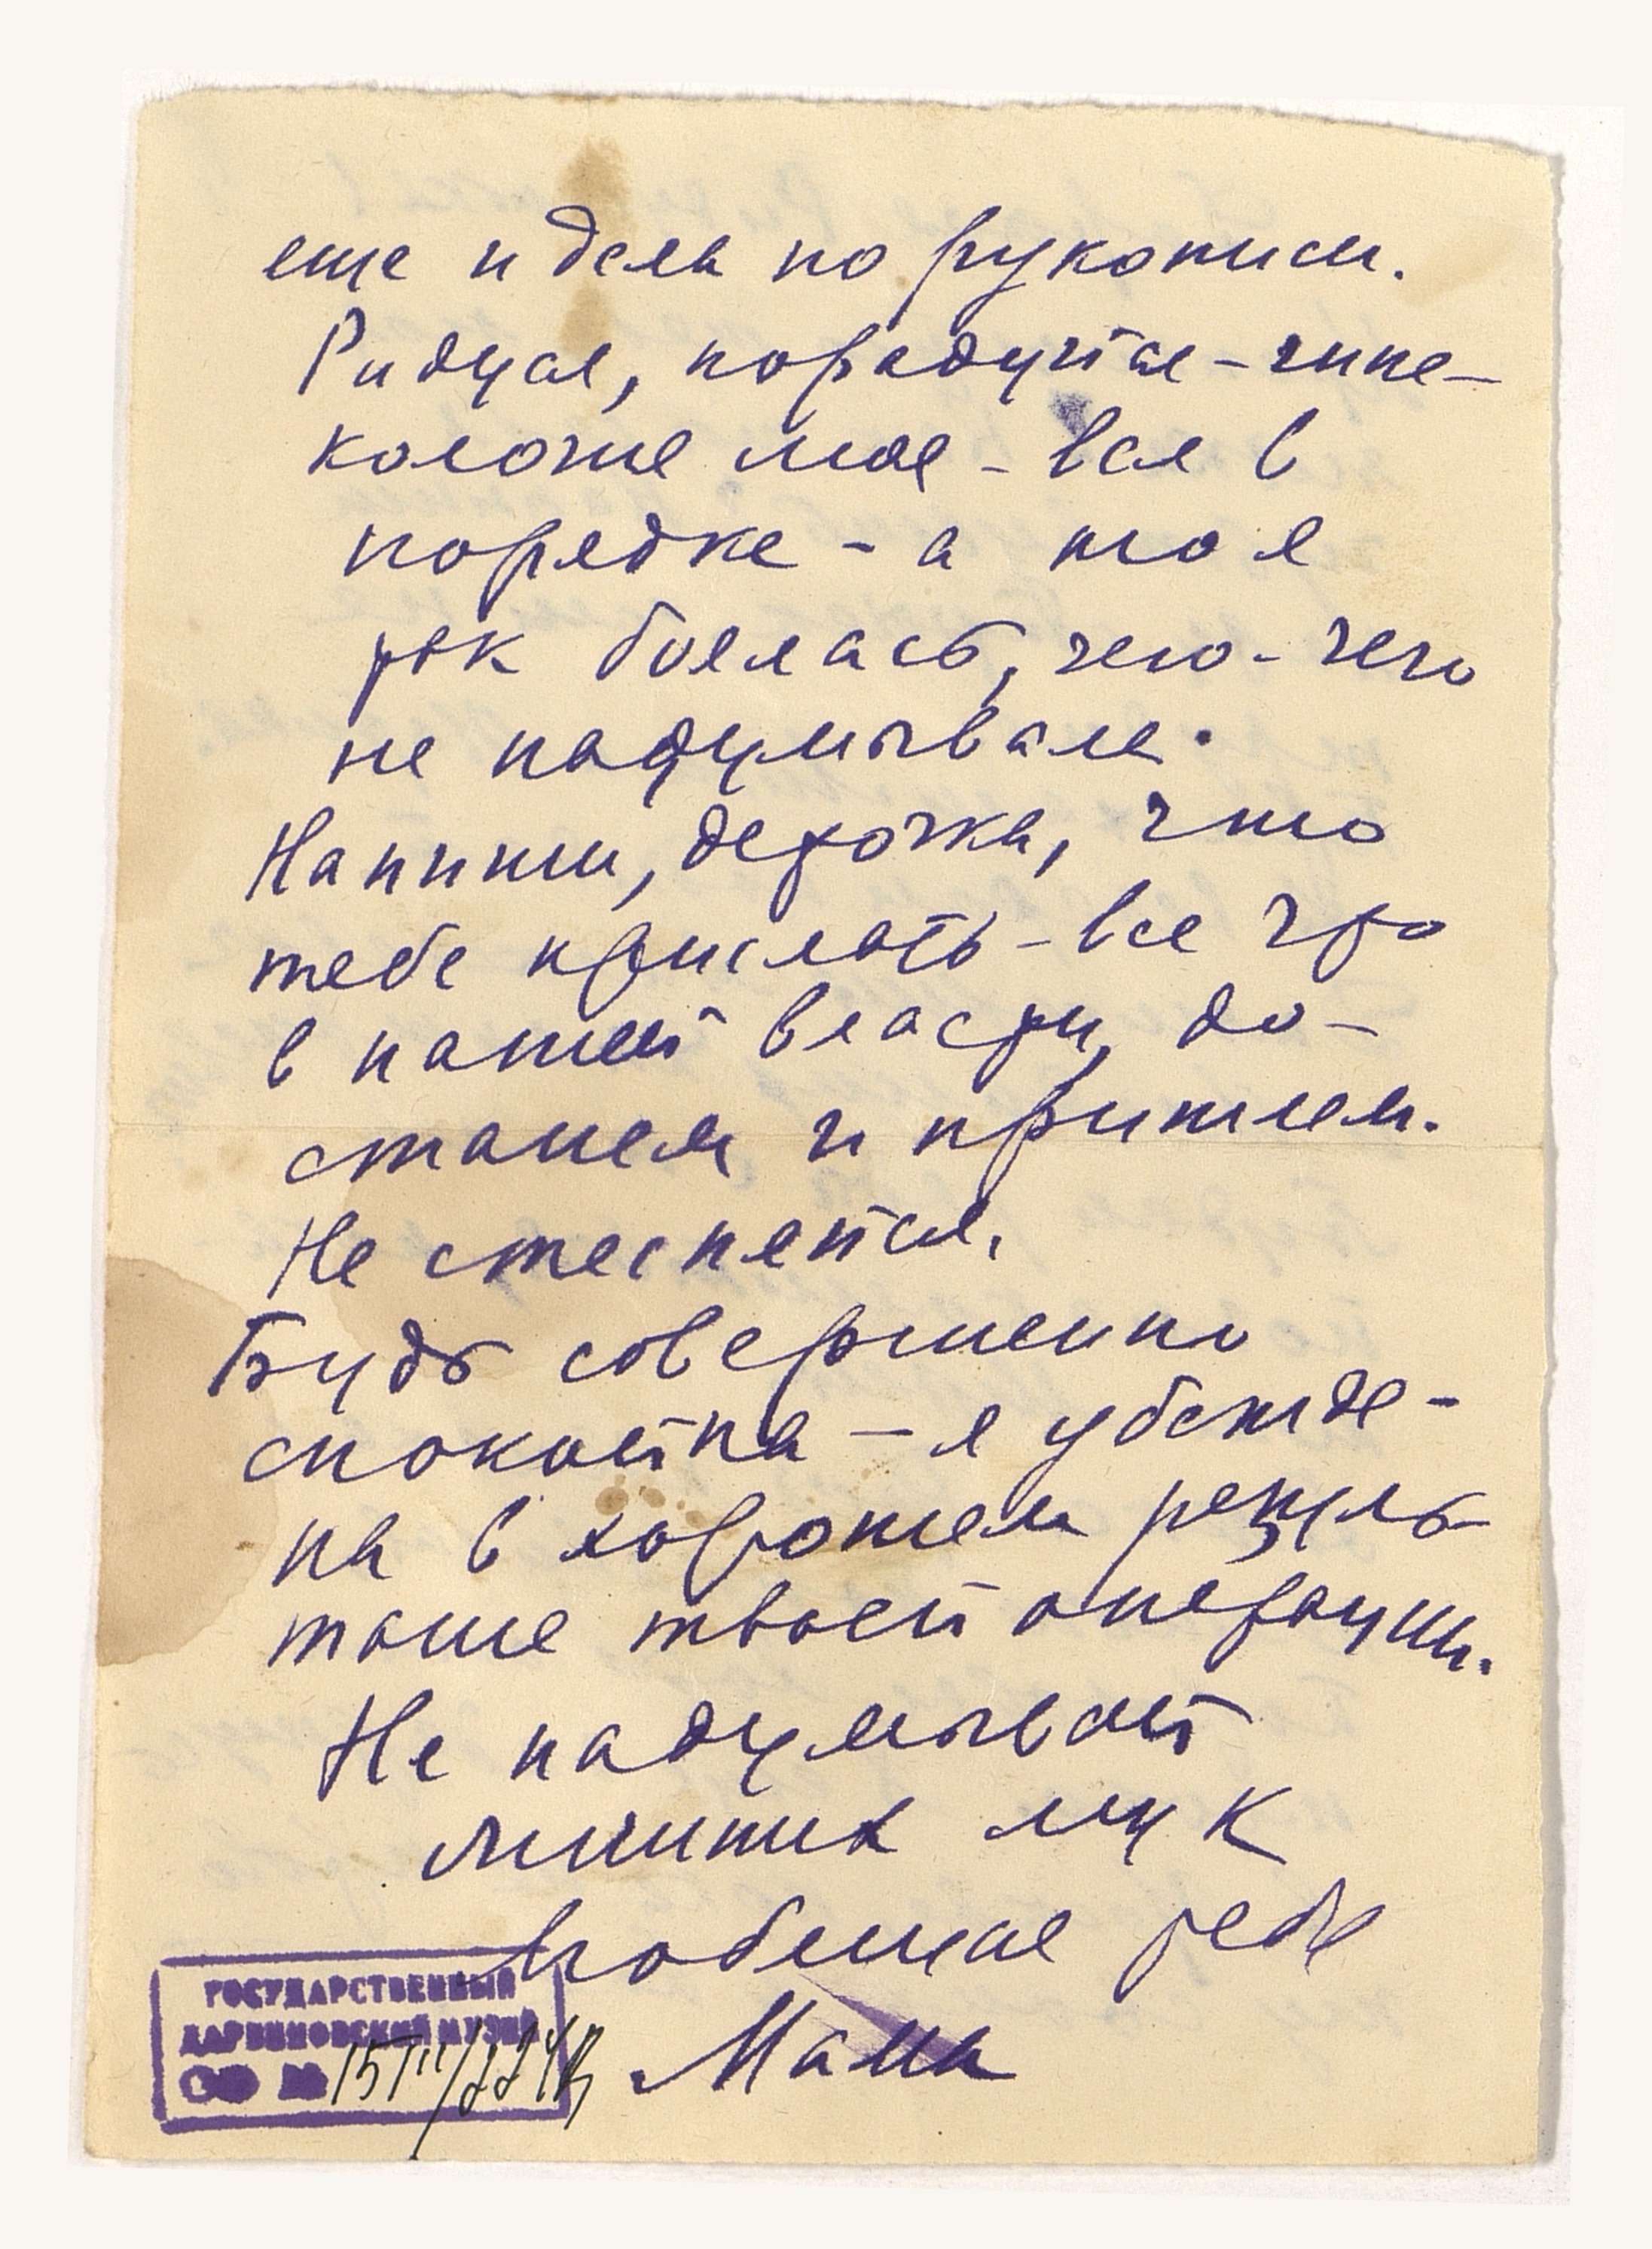 еще и дела по рукописи.
Ридуся, порадуйся – гине–
кологие мое – все в
порядке – а то я
так боялась, чего-чего
не надумывала.
Напиши, деточка, что
тебе прислать – все что
в нашей власти, до–
станем и пришлем.
Не стесняйся.
Будь совершенно
спокойна – я убежде–
на в хорошем резуль
тате твоей операции.
Не надумывай
лишних мук
Любящая тебя
Мама
ГОСУДАРСТВЕННЫЙ
ДАРВИНОВСКИЙ МУЗЕЙ
№